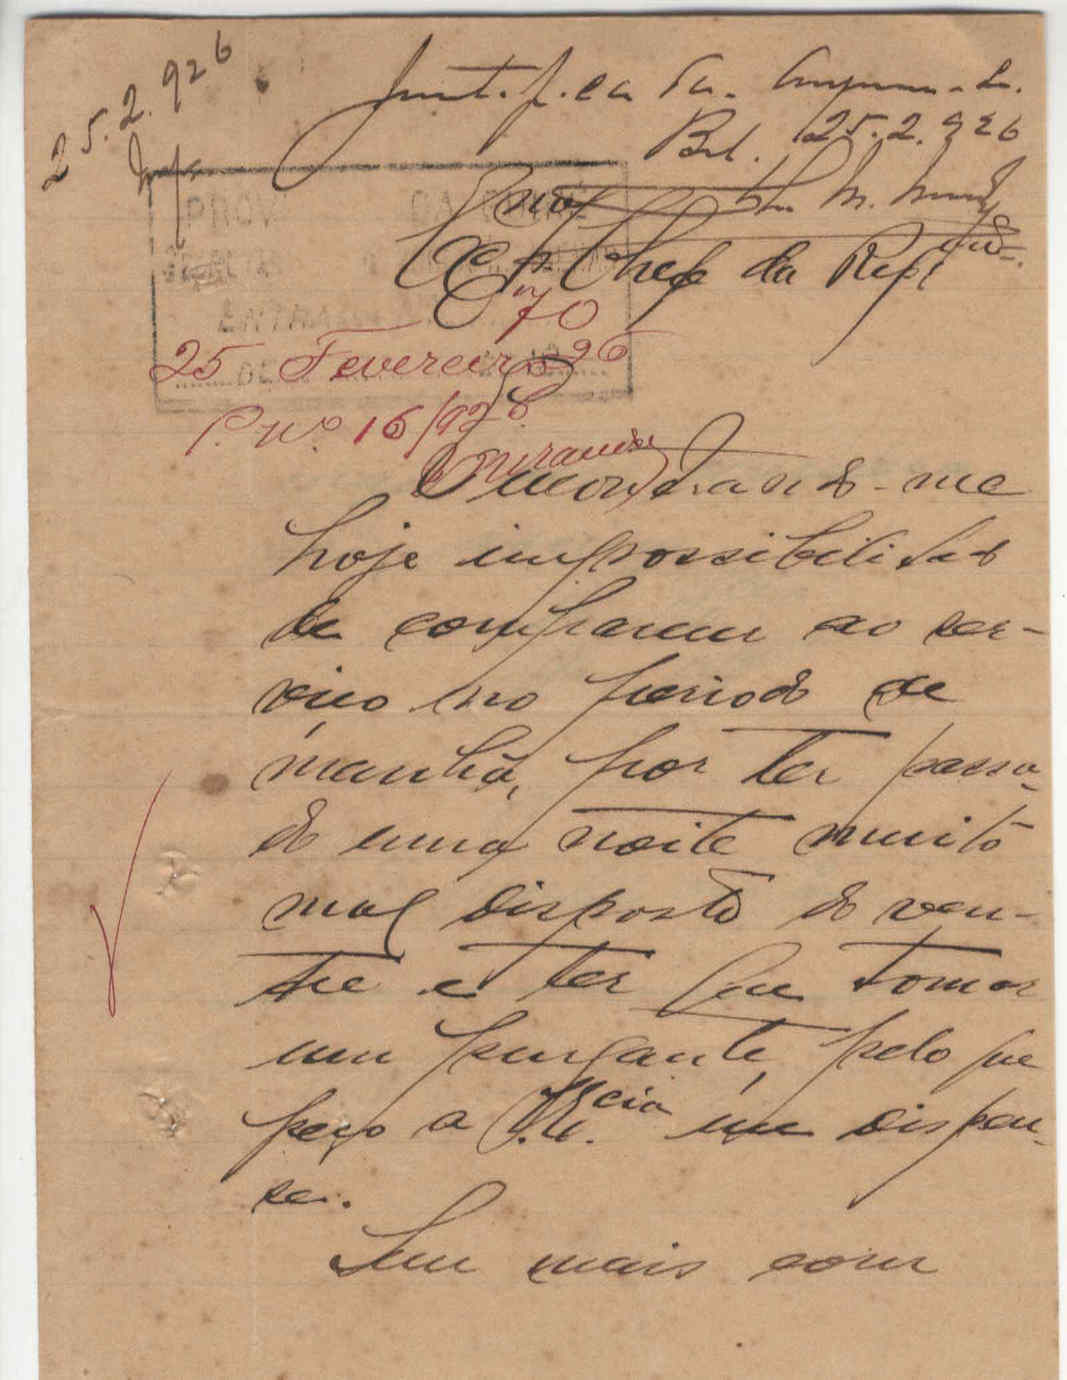 25.2.926
Bol. 25.2.926
Chefe da Rep
PROV DA GUINÉ
ENTRADA
70
25 DE Fevereiro 926
P. Nº 16/926
Miranda
Encontrando-me
hoje impossibilitado
de comparecer ao ser-
viço no periodo de
manhã, por ter passa-
do uma noite muito
mal disposto do ven-
tre e ter que tomar
um purgante, pelo que
peço a V. Ex.cia me dispen-
se.
Sem mais com